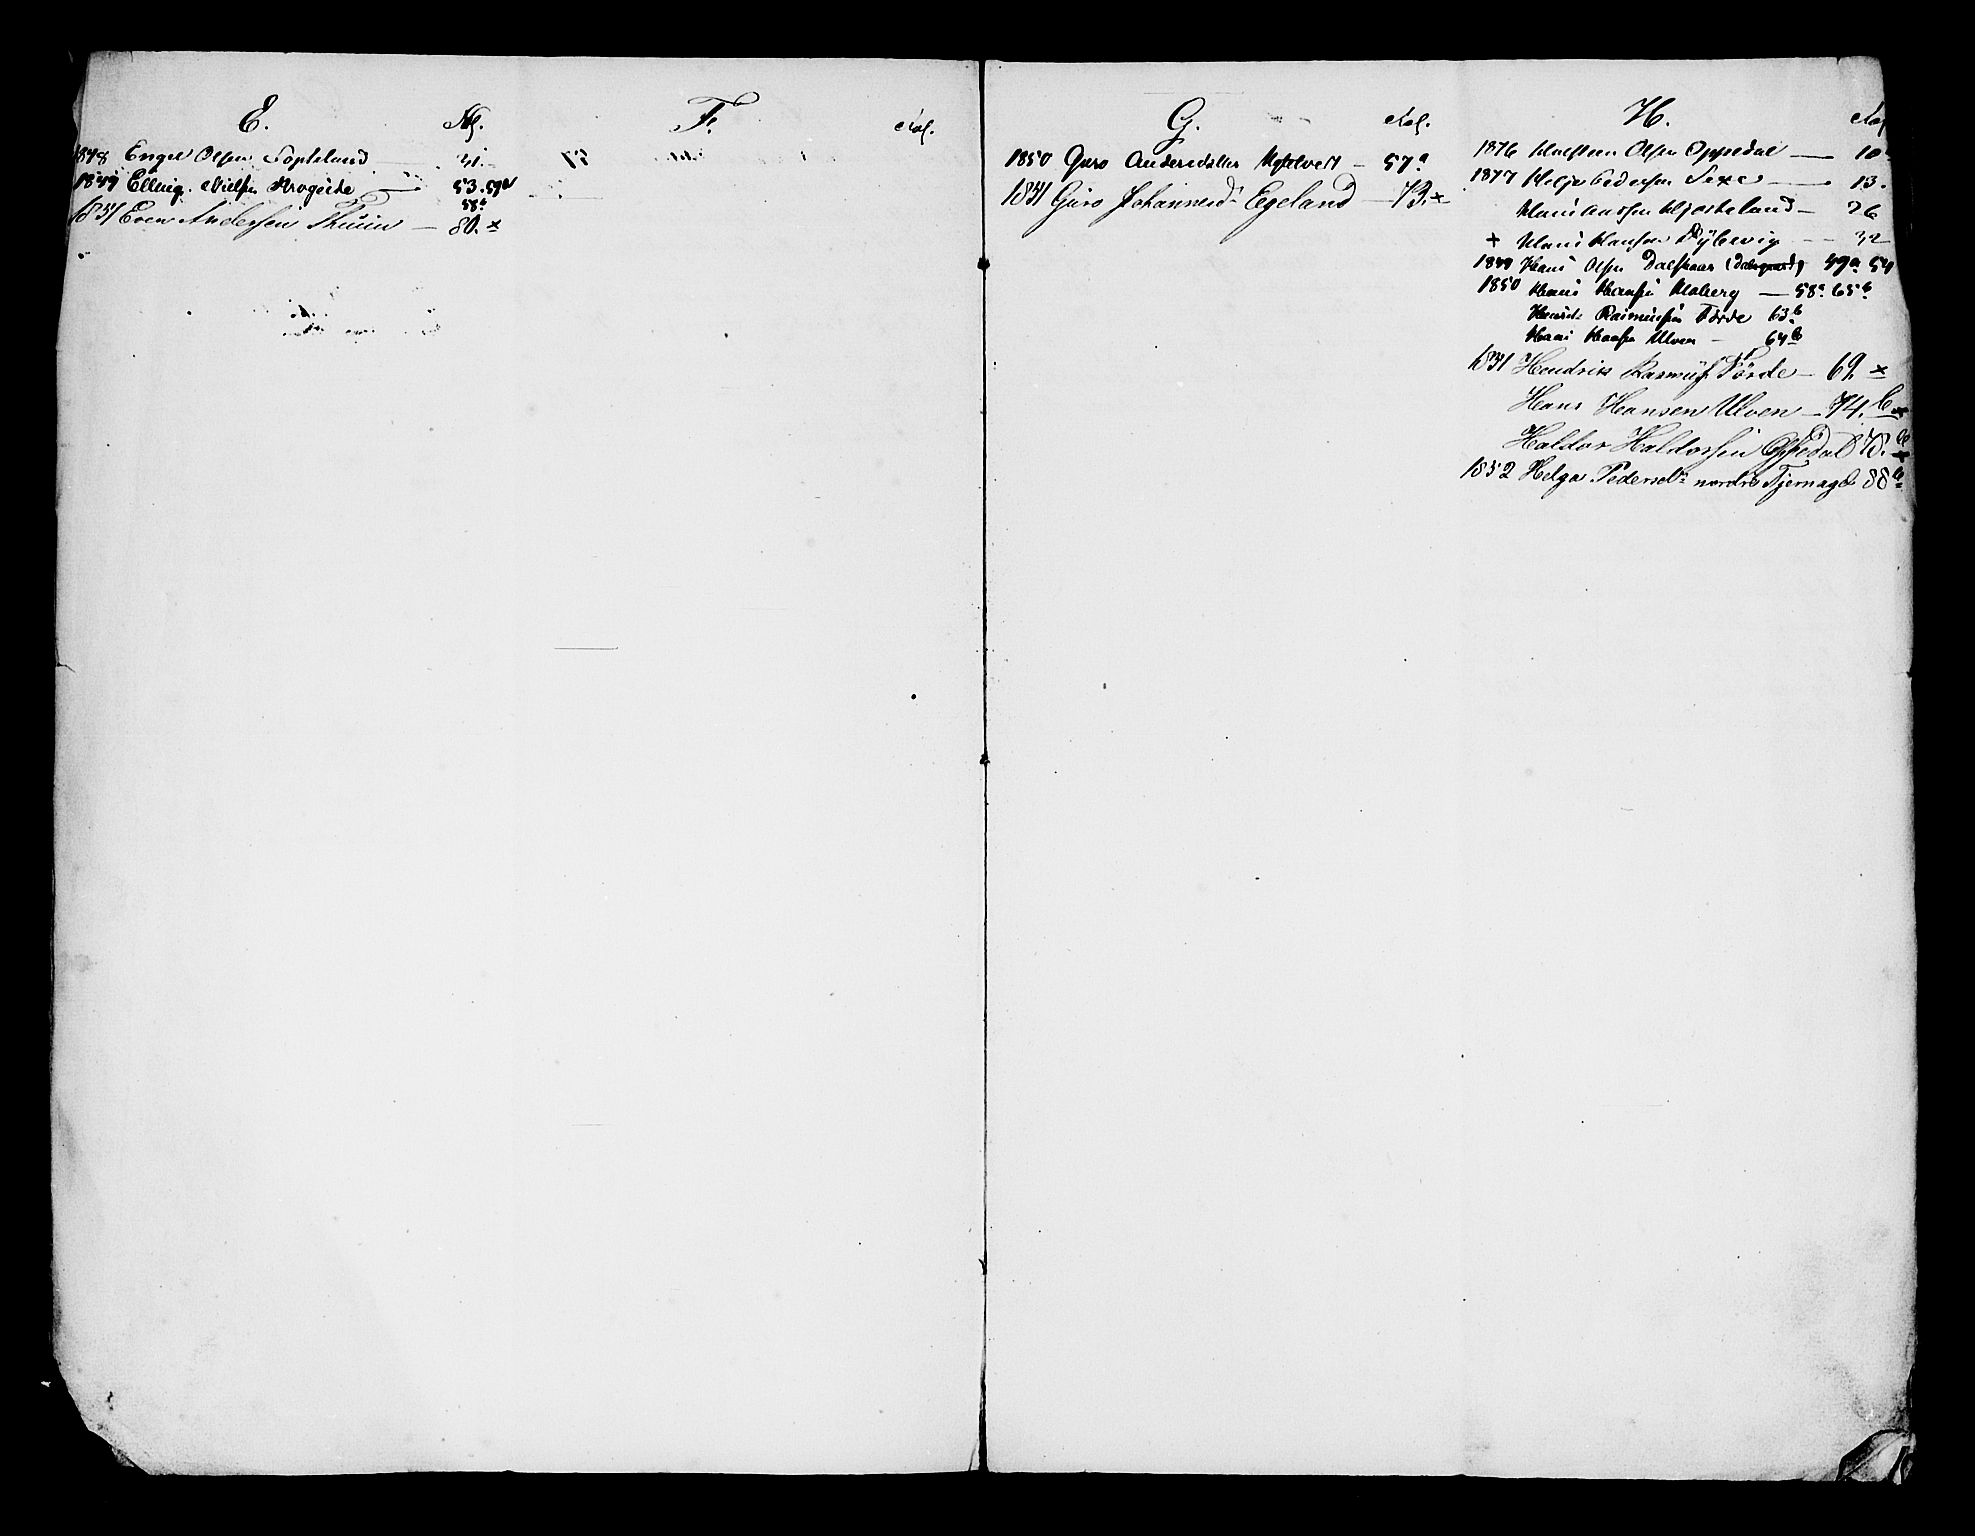 E. Fol.
1848 Engel Olsen Søpteland 31.
1849 Elling Nielsen Krogeide 53. 59a
58a
1851 Even Andersen Thuun — 80. x
F. Fol.
G. Fol.
1850 Guro Andersdatter — 57a
1851 Guro Johannesd. Egeland — 73. x
H. Fol
1846 Olsen Oppedal — 10
1847 Helje Pedersen Sexe — 13.
Hans — 26
+ Hans Hansen Dybevig — 32
1849 Hans Olsen Dalskaar (Dalsgaard) 49a 54
1850 Hans Hansen Moberg — 58a 65b
Henrik Rasmussen Førde 63b
Hans Hansen Ulven — 64b
1851 Hendrik Rasmuss. Førde — 69. x
Hans Hansen Ulven — 74. b x
Haldor Haldorsen Oppedal 78. b x
1852 Helga Pedersd. nordre Tjernagel 88 b